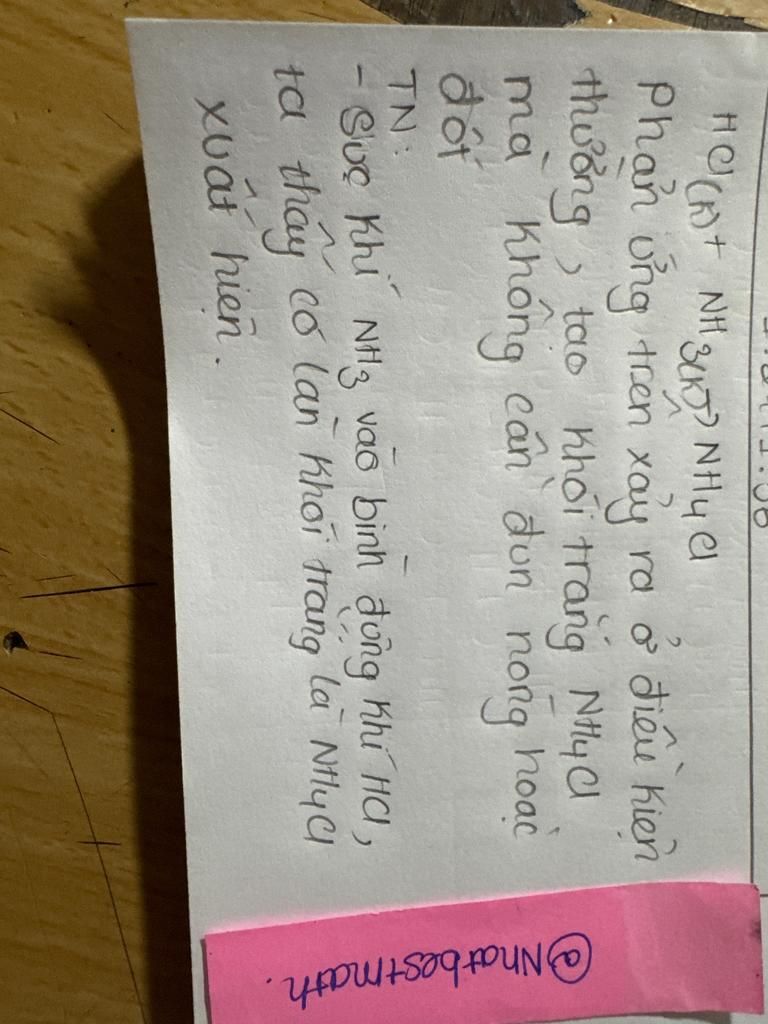 HCl(k) + NH3(k) → NH4Cl
Phản ứng trên xảy ra ở điều kiện
thường, tạo khói trắng NH4Cl
mà không cần đun nóng hoặc
đốt
TN:
- Sục khí NH3 vào bình đựng khí HCl,
ta thấy có làn khói trắng là NH4Cl
xuất hiện.
@Nhatbestmath.